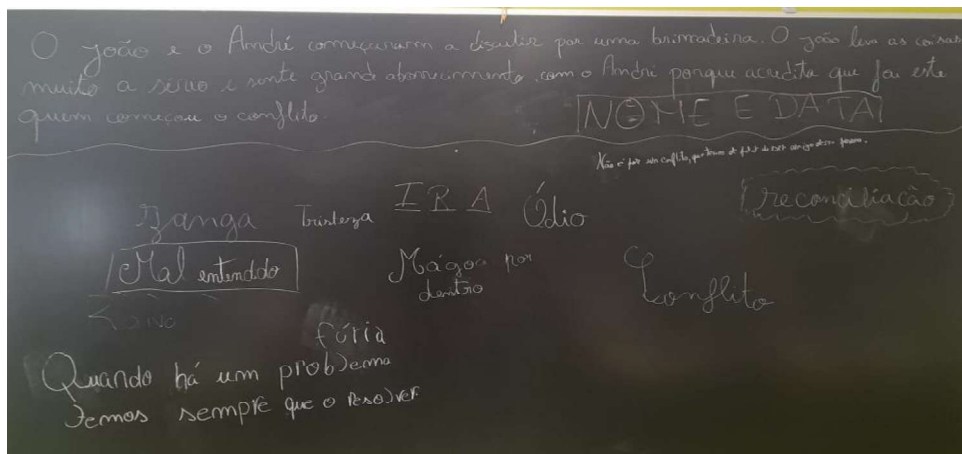 O João e o André começaram a discutir por uma brincadeira. O joão leva as coisas
muito a sério e sente grand aborrecimento com o André porque acredita que foi este
quem começou o conflito.
NOME E DATA
Não é por um conflito, que temos de deixar de ser amigo dessa pessoa.
reconciliação
Zanga Tristeza IRA Ódio
Mal entendido
Mágoa por
dentro
Conflito
fúria
Quando há um problema
temos sempre que o resolver.